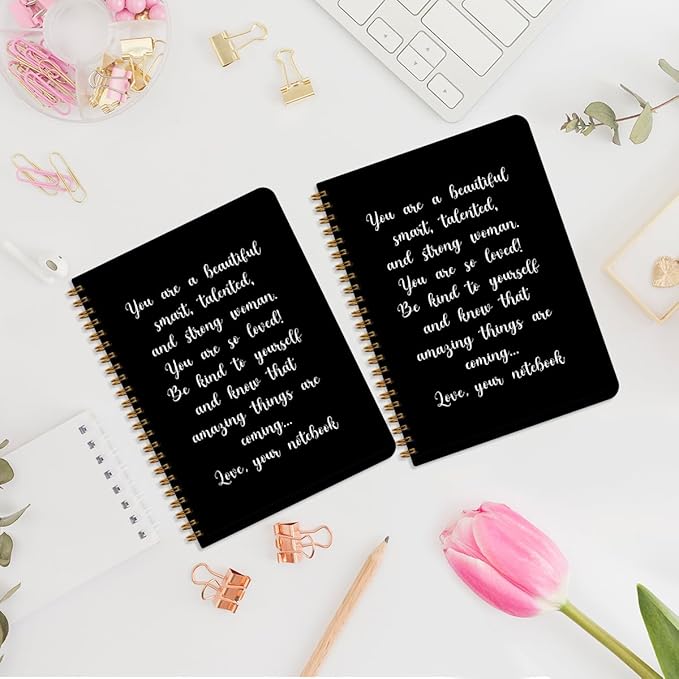 You are a beautiful
smart, talented,
and strong woman.
You are so loved!
Be kind to yourself
and know that
amazing things are
coming...
Love, your notebook
You are a beautiful
smart, talented,
and strong woman.
You are so loved!
Be kind to yourself
and know that
amazing things are
coming...
Love, your notebook